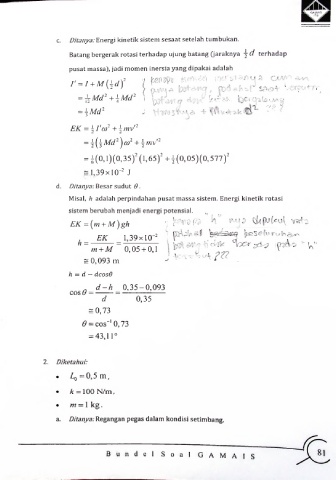 c. Ditanya: Energi kinetik sistem sesaat setelah tumbukan.
Batang bergerak rotasi terhadap ujung batang (jaraknya ½d terhadap
pusat massa), jadi momen inersia yang dipakai adalah
I' = I + M(½d)²
= 1/12 Md² + ¼Md²
= ⅓Md²
EK = ½I'ω² + ½mv'²
= ½(⅓Md²)ω² + ½mv'²
= ⅙(0,1)(0,35)²(1,65)² + ½(0,05)(0,577)²
≅ 1,39×10⁻² J
d. Ditanya: Besar sudut θ.
Misal, h adalah perpindahan pusat massa sistem. Energi kinetik rotasi
sistem berubah menjadi energi potensial.
EK = (m + M)gh
h = EK / (m + M) = 1,39×10⁻² / (0,05 + 0,1)
≅ 0,093 m
h = d − dcosθ
cos θ = (d − h) / d = (0,35 − 0,093) / 0,35
≅ 0,73
θ = cos⁻¹ 0,73
= 43,11°
2. Diketahui:
• L₀ = 0,5 m.
• k = 100 N/m.
• m = 1 kg.
a. Ditanya: Regangan pegas dalam kondisi setimbang.
Bundel Soal GAMAIS
81